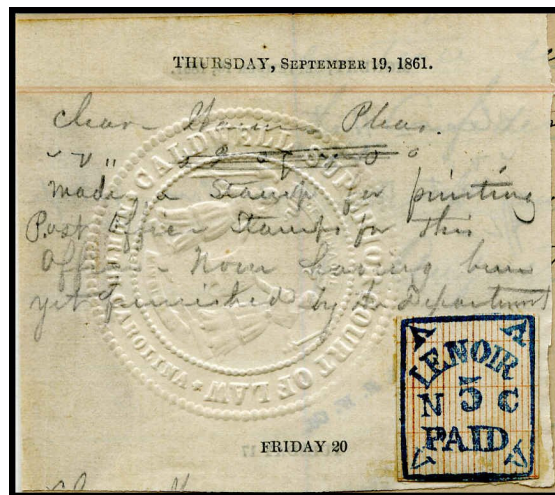 THURSDAY, SEPTEMBER 19, 1861.
Clear Warm Pleas.
" v "
made a Stamp for printing
Post Office Stamps for this
Office - None having been
yet furnished by the Department
CALDWELL SUPERIOR COURT OF LAW
LENOIR
N 5 C
PAID
FRIDAY 20